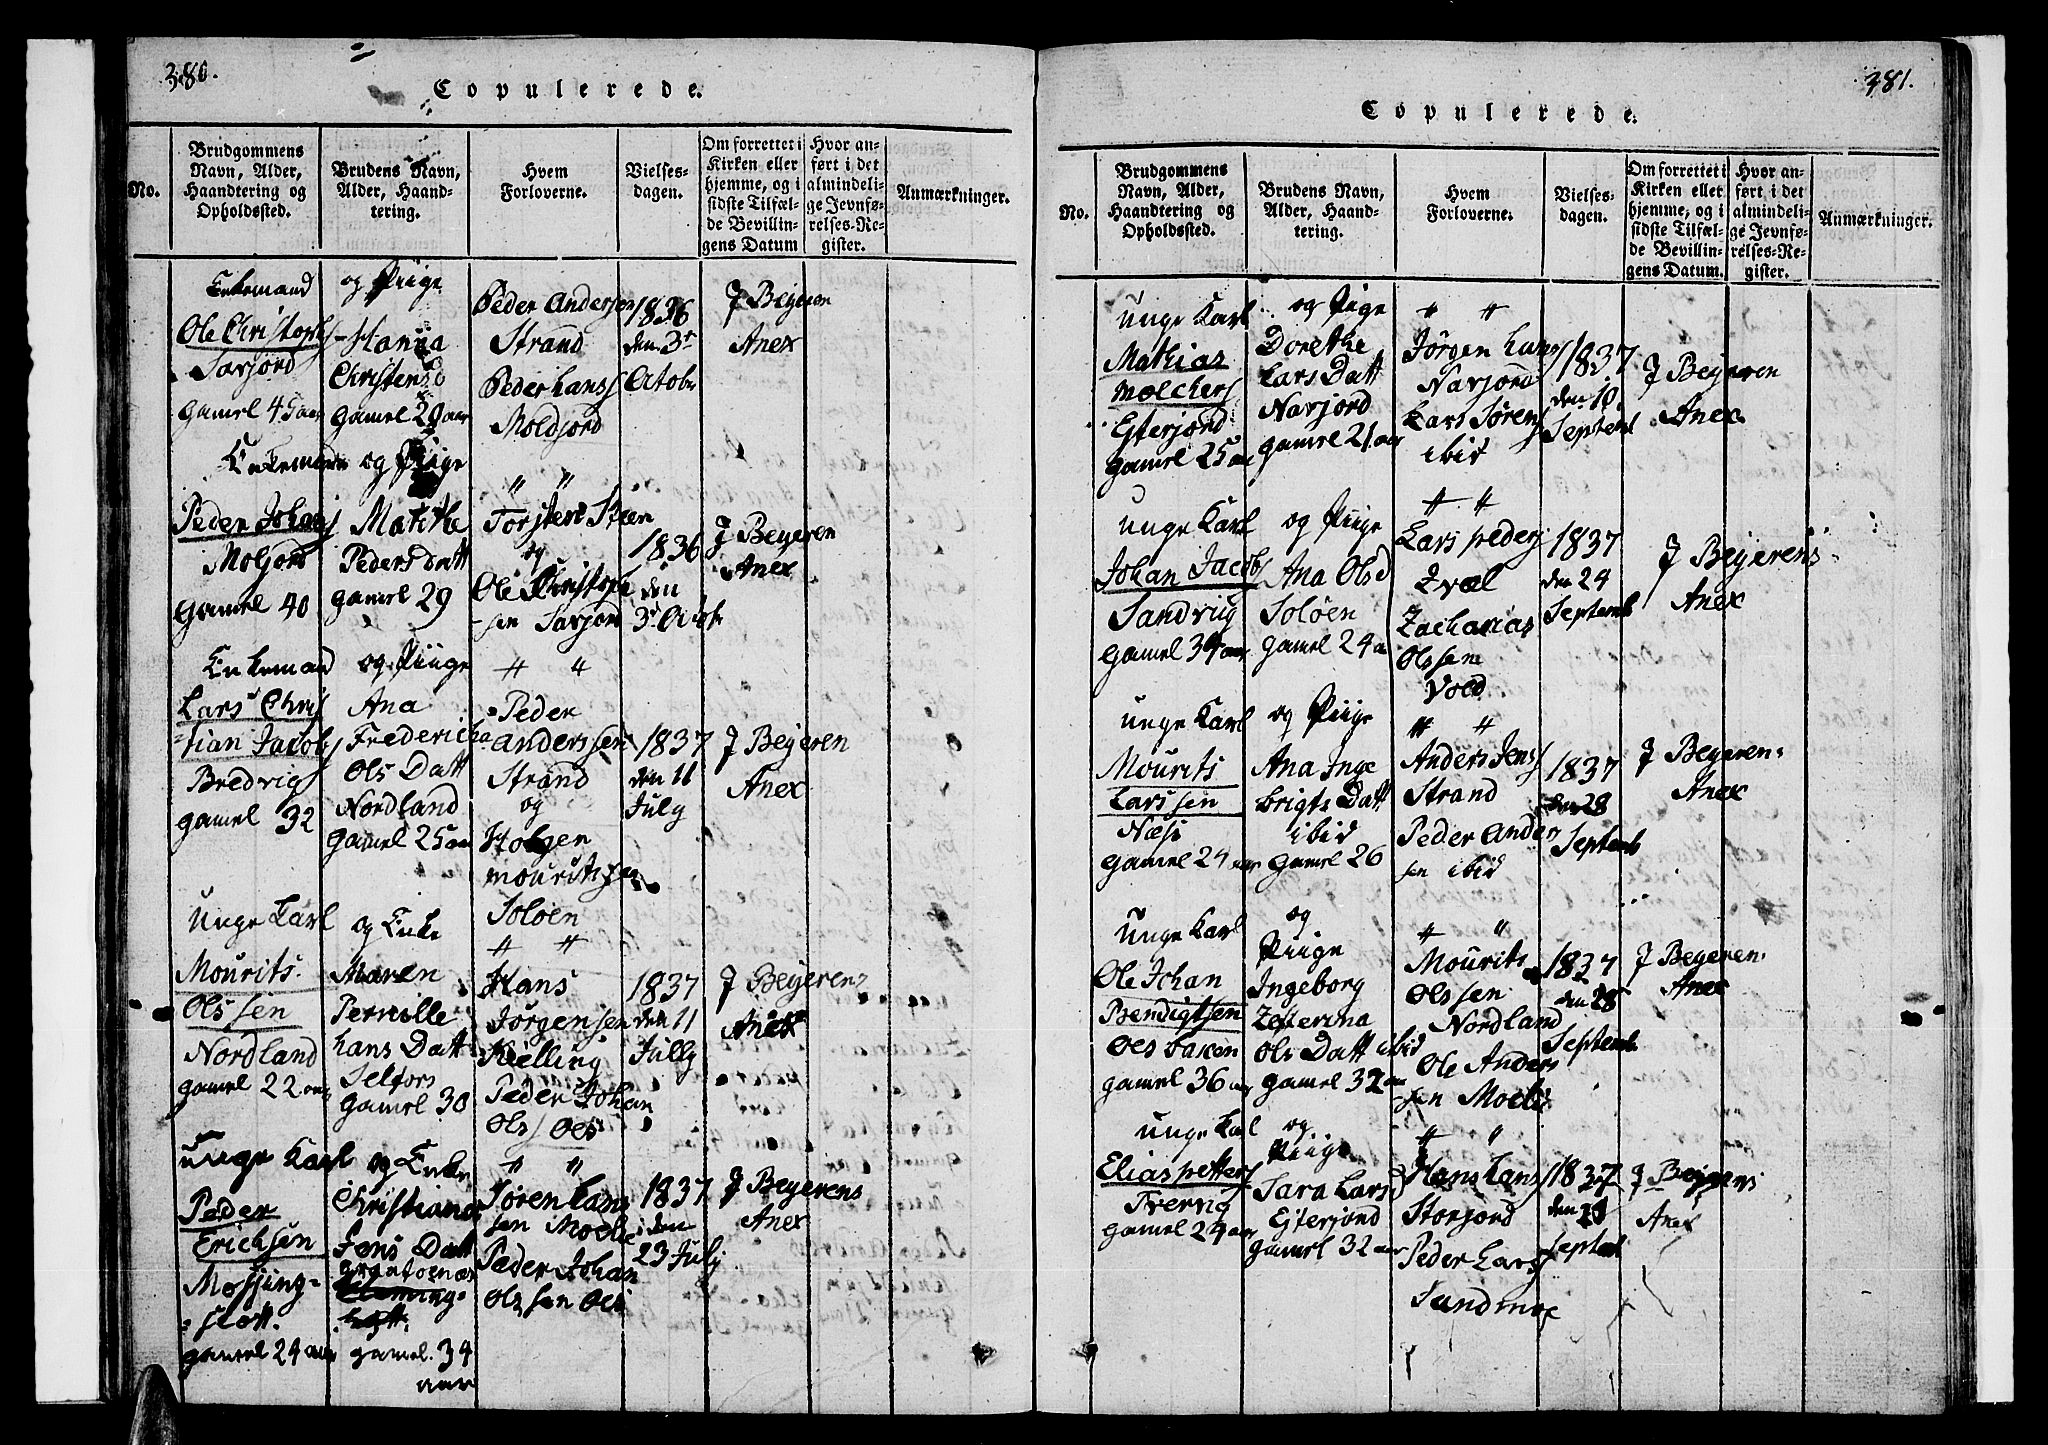 380.
Copulerede.
No.
Brudgommens
Navn, Alder,
Haandtering og
Opholdssted.
Brudens Navn,
Alder, Haand-
tering.
Hvem
Forloverne.
Vielses-
dagen.
Om forrettet i
Kirken eller
hjemme, og i
sidste Tilfæl-
de Bevillin-
gens Datum
Hvor an-
ført i det
almindeli-
ge Jevnfø-
relses-Re-
gister.
Anmærkninger.
Enkemand
Ole Christophs
Savjord
gamel 45 aar
og Piige
Hanna
Christensd
Gamel 29 aar
Peder Andersen
Strand
Peder Hanss
Moldjord
1836
den 3t
Octobr
J Beyeren
Anex
Enkemand
Peder Johans
Moljord
Gamel 40
og Piige
Matithe
Pedersdatt
gamel 29
" "
Torsten Steen
og
Ole Christoph
-sen Savjord
1836
den
3t Octob
J Beyeren
Anex
Enkemand
Lars Chris
-tian Jacobs
Bredvig
gamel 32
og Piige
Ana
Fredericha
Ols Datt
Nordland
Gamel 25 aar
" "
Peder
Anderssen
Strand
og
Holgen
mouritssen
Soløen
1837
den 11
July
J Beyeren
Anex
Unge Karl
Mourits
Olssen
Nordland
gamel 22 aar
og Enke
Maren
Pernille
Hans Datt
Selfors
Gamel 30
" "
Hans
Jørgensen
Kielling
Peder Johan
Olss Oes
1837
den 11
Jully
J Beyerens
Anex
unge Karl
Peder
Erichsen
Messing-
slett.
gamel 24 aar
og Enke
Christiana
Jens Datt
Grantoenæs
gamel. 34
aar
" "
Søren Hans
sen Moelie
Peder Johan
Olssen Oes
1837
den
23 July
J Beyerens
Anex
381.
Copulerede.
No.
Brudgommens
Navn, Alder,
Haandtering og
Opholdssted.
Brudens Navn,
Alder, Haand-
tering.
Hvem
Forloverne.
Vielses-
dagen.
Om forrettet i
Kirken eller
hjemme, og i
sidste Tilfæl-
de Bevillin-
gens Datum.
Hvor an-
ført i det
almindeli-
ge Jevnfø-
relses-Re-
gister.
Anmærkninger.
unge Karl
Mathias
Molchers
Ejterjord
gamel 25 aar
og Pige
Dorethe
Lars Datt
Navjord
gamel 21 aar
" "
Jørgen Hans
Navjord
Lars Sørens
ibid
1837
den 10
Septemb
J Beyeren
Anex
unge Karl
Johan Jacobs
Sandvig
gamel 34 aar
og Piige
Ana Olsd
Soløen
gamel 24 a
" "
Lars peders
Evæl
Zacharias
Olssen
Vold.
1837
den 24
Septemb
J Beyerens
Anex
unge Karl
Mourits
Larssen
Næss
gamel 24 aar
og Piige
Ana Inge
brigts Datt
ibid
gamel 26
" "
Anders Jenss
Strand
Peder Anders
sen ibid
1837
den 28
Septemb
J Beyeren
Anex
unge Karl
Ole Johan
Bendigtsen
Oes
gamel 36 aar
og
Piige
Ingeborg
Zeferina
Ols Datt ibid
gamel 32 aar
" "
Mourits
Olssen
Nordland
Ole Anders
-sen Moelie
1837
den 28
Septemb
J Beyeren
Anex
unge Karl
Elias petters
Tverrig
gamel 24 aar
og
Piige
Sara Larsd
Ejterjord
gamel 32 aar
" "
Hans Hans
Storjord
Peder Lars
Sandmoe
1837
den
Septemb
J Beyerens
Anex